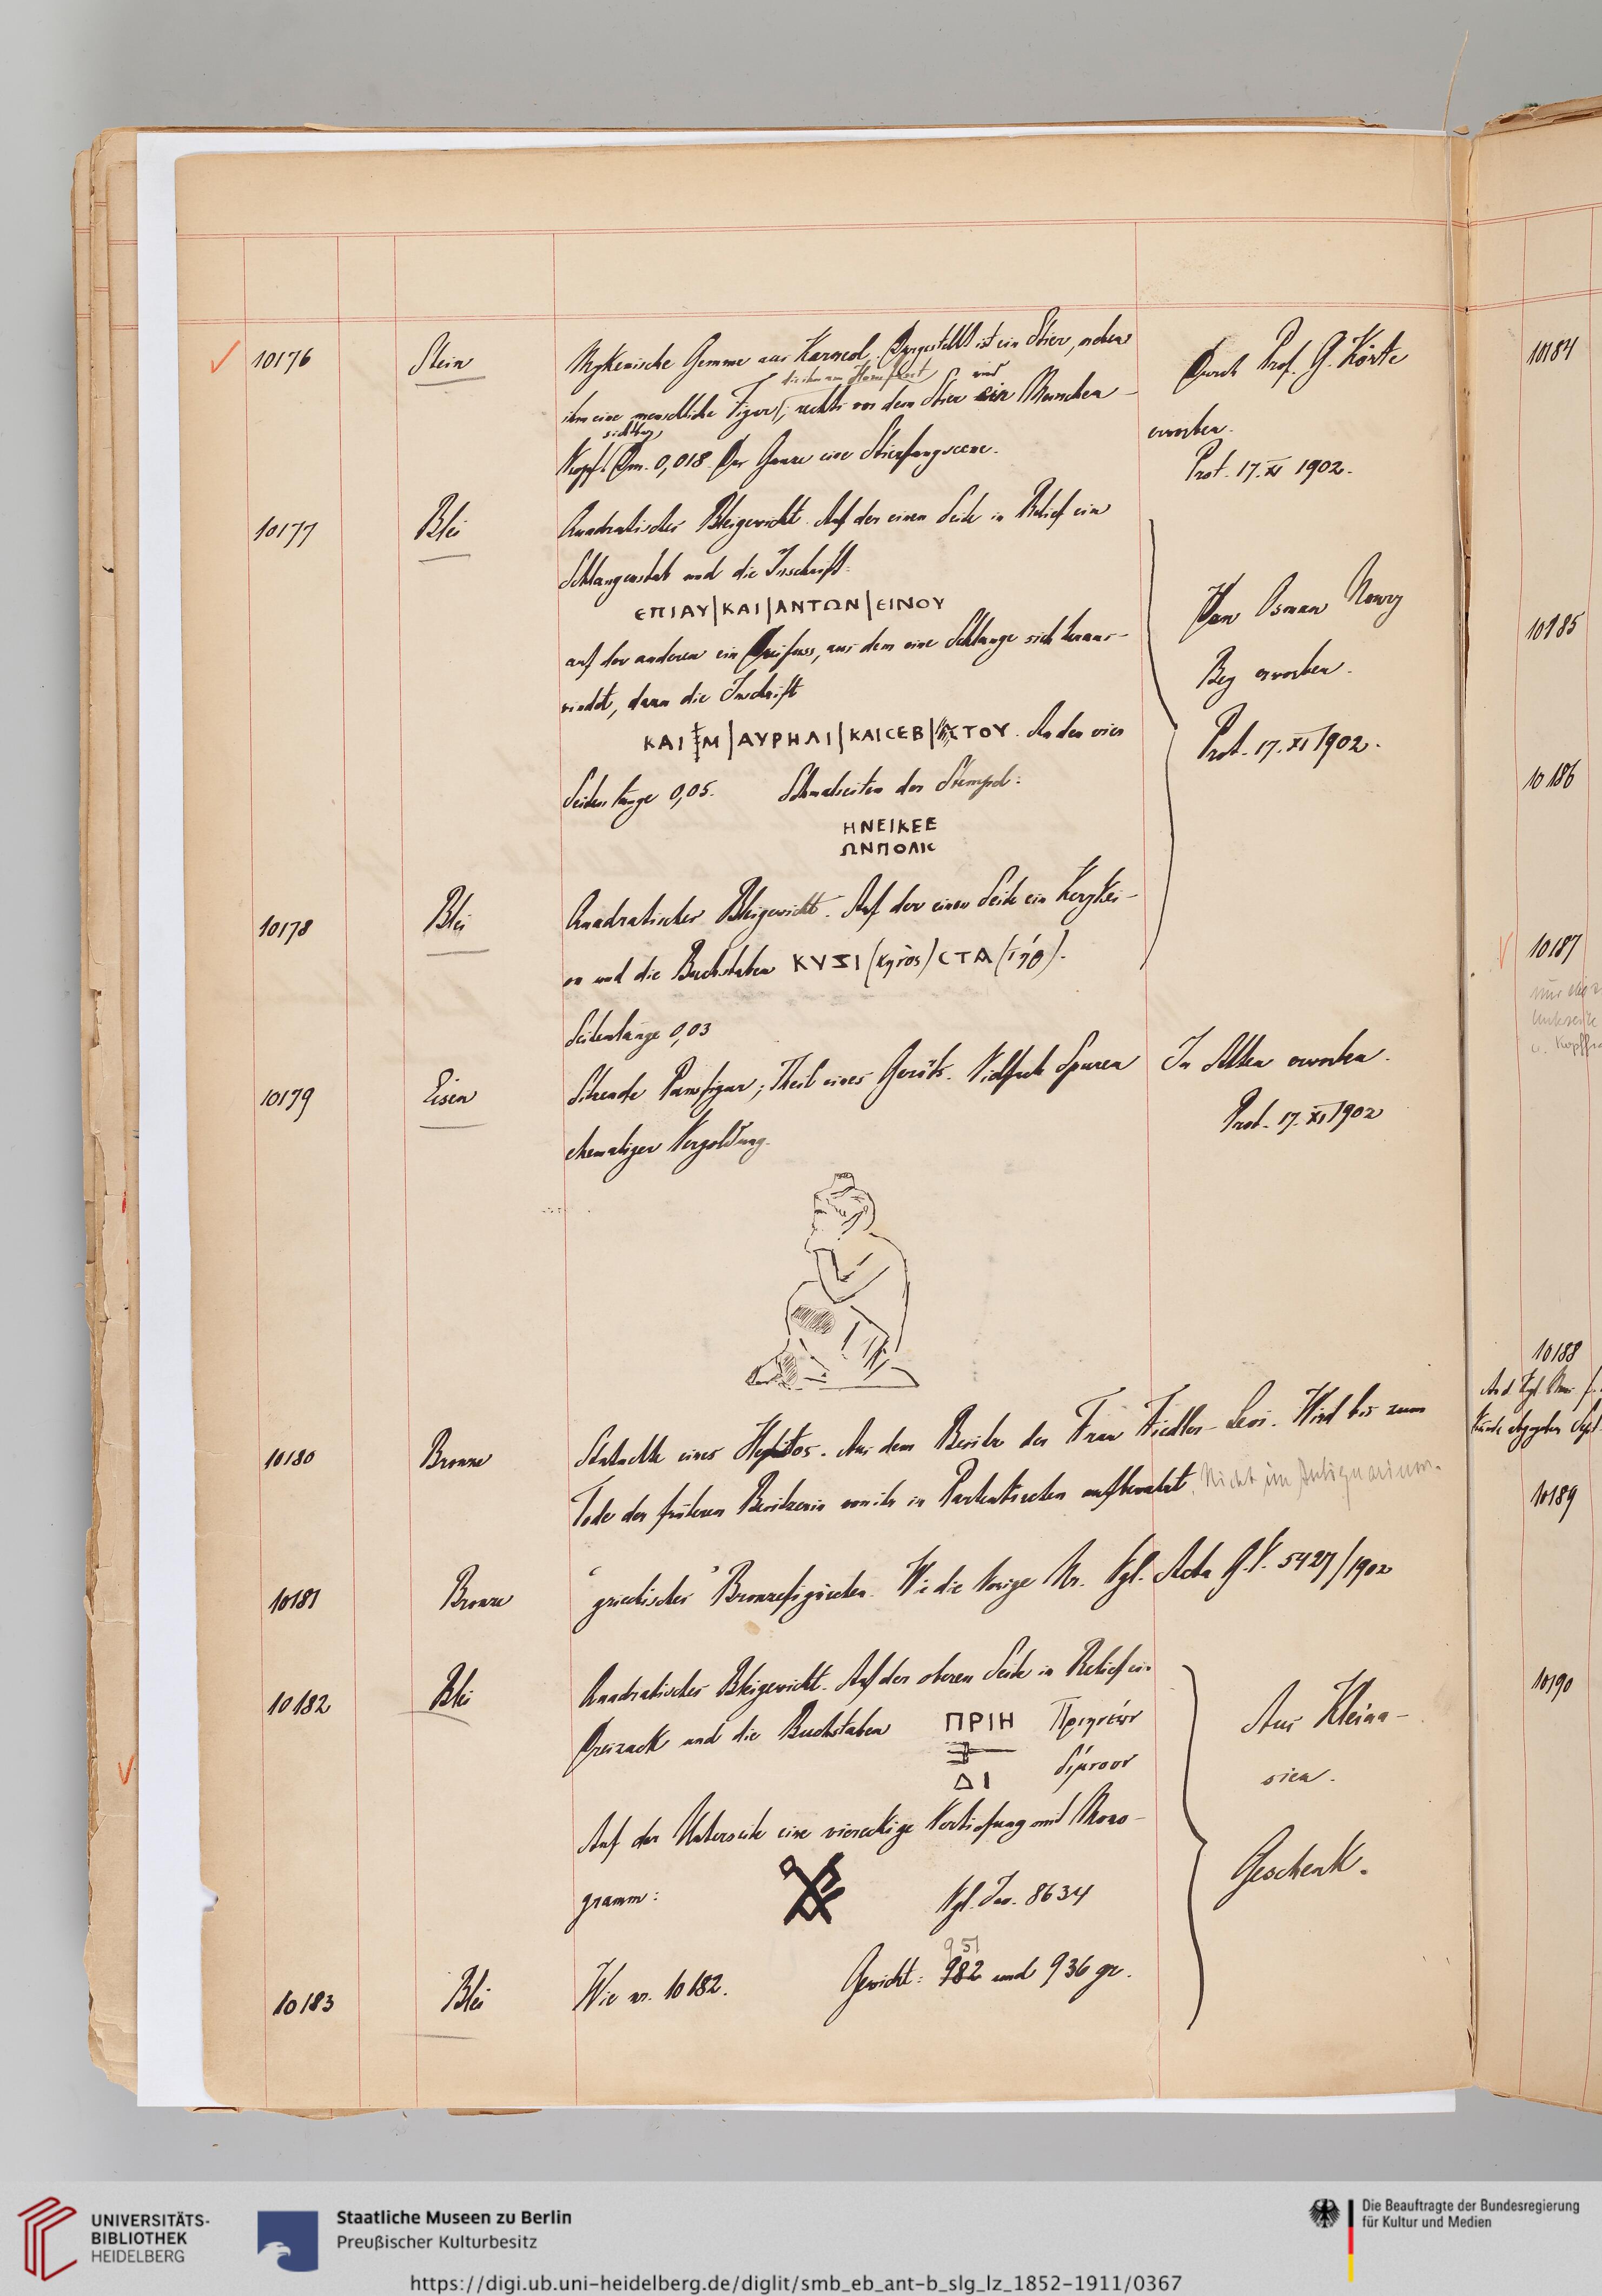 10176 Stein Mykenische Gemme aus Karneol. Dargestellt ist ein Stier, neben Durch Prof. G. Körte
die ihn am Horn
ihm eine menschliche Figur; rechts vor dem Stier ein Menschen- erworben.
sichtbar
Kopf. Dm. 0,018. Das Ganze eine Stierfangscene. Prot. 17. XI 1902.
10177 Blei Quadratisches Bleigewicht. Auf der einen Seite in Relief ein
Schlangenstab und die Inschrift:
ЄΠΙΑΥ|ΚΑΙ|ΑΝΤΩΝ|ЄΙΝΟΥ Von Osman
auf der anderen ein Dreifuss, aus dem eine Schlange sich heraus-
windet, dazu die Inschrift Bey erworben.
ΚΑΙ Μ|ΑΥΡΗΛΙ|ΚΑΙCЄΒ| CΤΟΥ. An den vier Prot. 17. XI 1902.
Seitenlänge 0,05. Schmalseiten der Stempel:
ΗΝΕΙΚΕΕ
ΩΝΠΟΛΙC
10178 Blei Quadratisches Bleigewicht. Auf der einen Seite ein Kerykei-
on und die Buchstaben ΚΥΖΙ (κηνὸς) CΤΑ (τήρ).
Seitenlänge 0,03
10179 Eisen Sitzende Panfigur; Theil eines Geräts. Vielfach Spuren In Athen erworben.
ehemaliger Vergoldung. Prot. 17. XI 1902
10180 Bronze Statuette eines Hephaistos. Aus dem Besitz der Frau Fiedler-Levi. Wird bis zum
Tode der früheren Besitzerin von ihr in Partenkirchen aufbewahrt. Nicht im Antiquarium.
10181 Bronze "griechisches" Bronzefigürchen. Wie die vorige Nr. Vgl. Acta G.V. 5427/1902
10182 Blei Quadratisches Bleigewicht. Auf der oberen Seite in Relief ein
Dreizack und die Buchstaben ΠΡΙΗ Πριηνέων Aus Kleina-
ΔΙ δίμνουν sien.
Auf der Unterseite eine viereckige Vertiefung mit Mono-
gramm: Vgl. Inv. 8634 Geschenk.
951
10183 Blei Wie nr. 10182. Gewicht: 982 und 936 gr.
10184
10185
10186
10187
10188
10189
10190
UNIVERSITÄTS-
BIBLIOTHEK
HEIDELBERG
Staatliche Museen zu Berlin
Preußischer Kulturbesitz
Die Beauftragte der Bundesregierung
für Kultur und Medien
https://digi.ub.uni-heidelberg.de/diglit/smb_eb_ant-b_slg_lz_1852-1911/0367